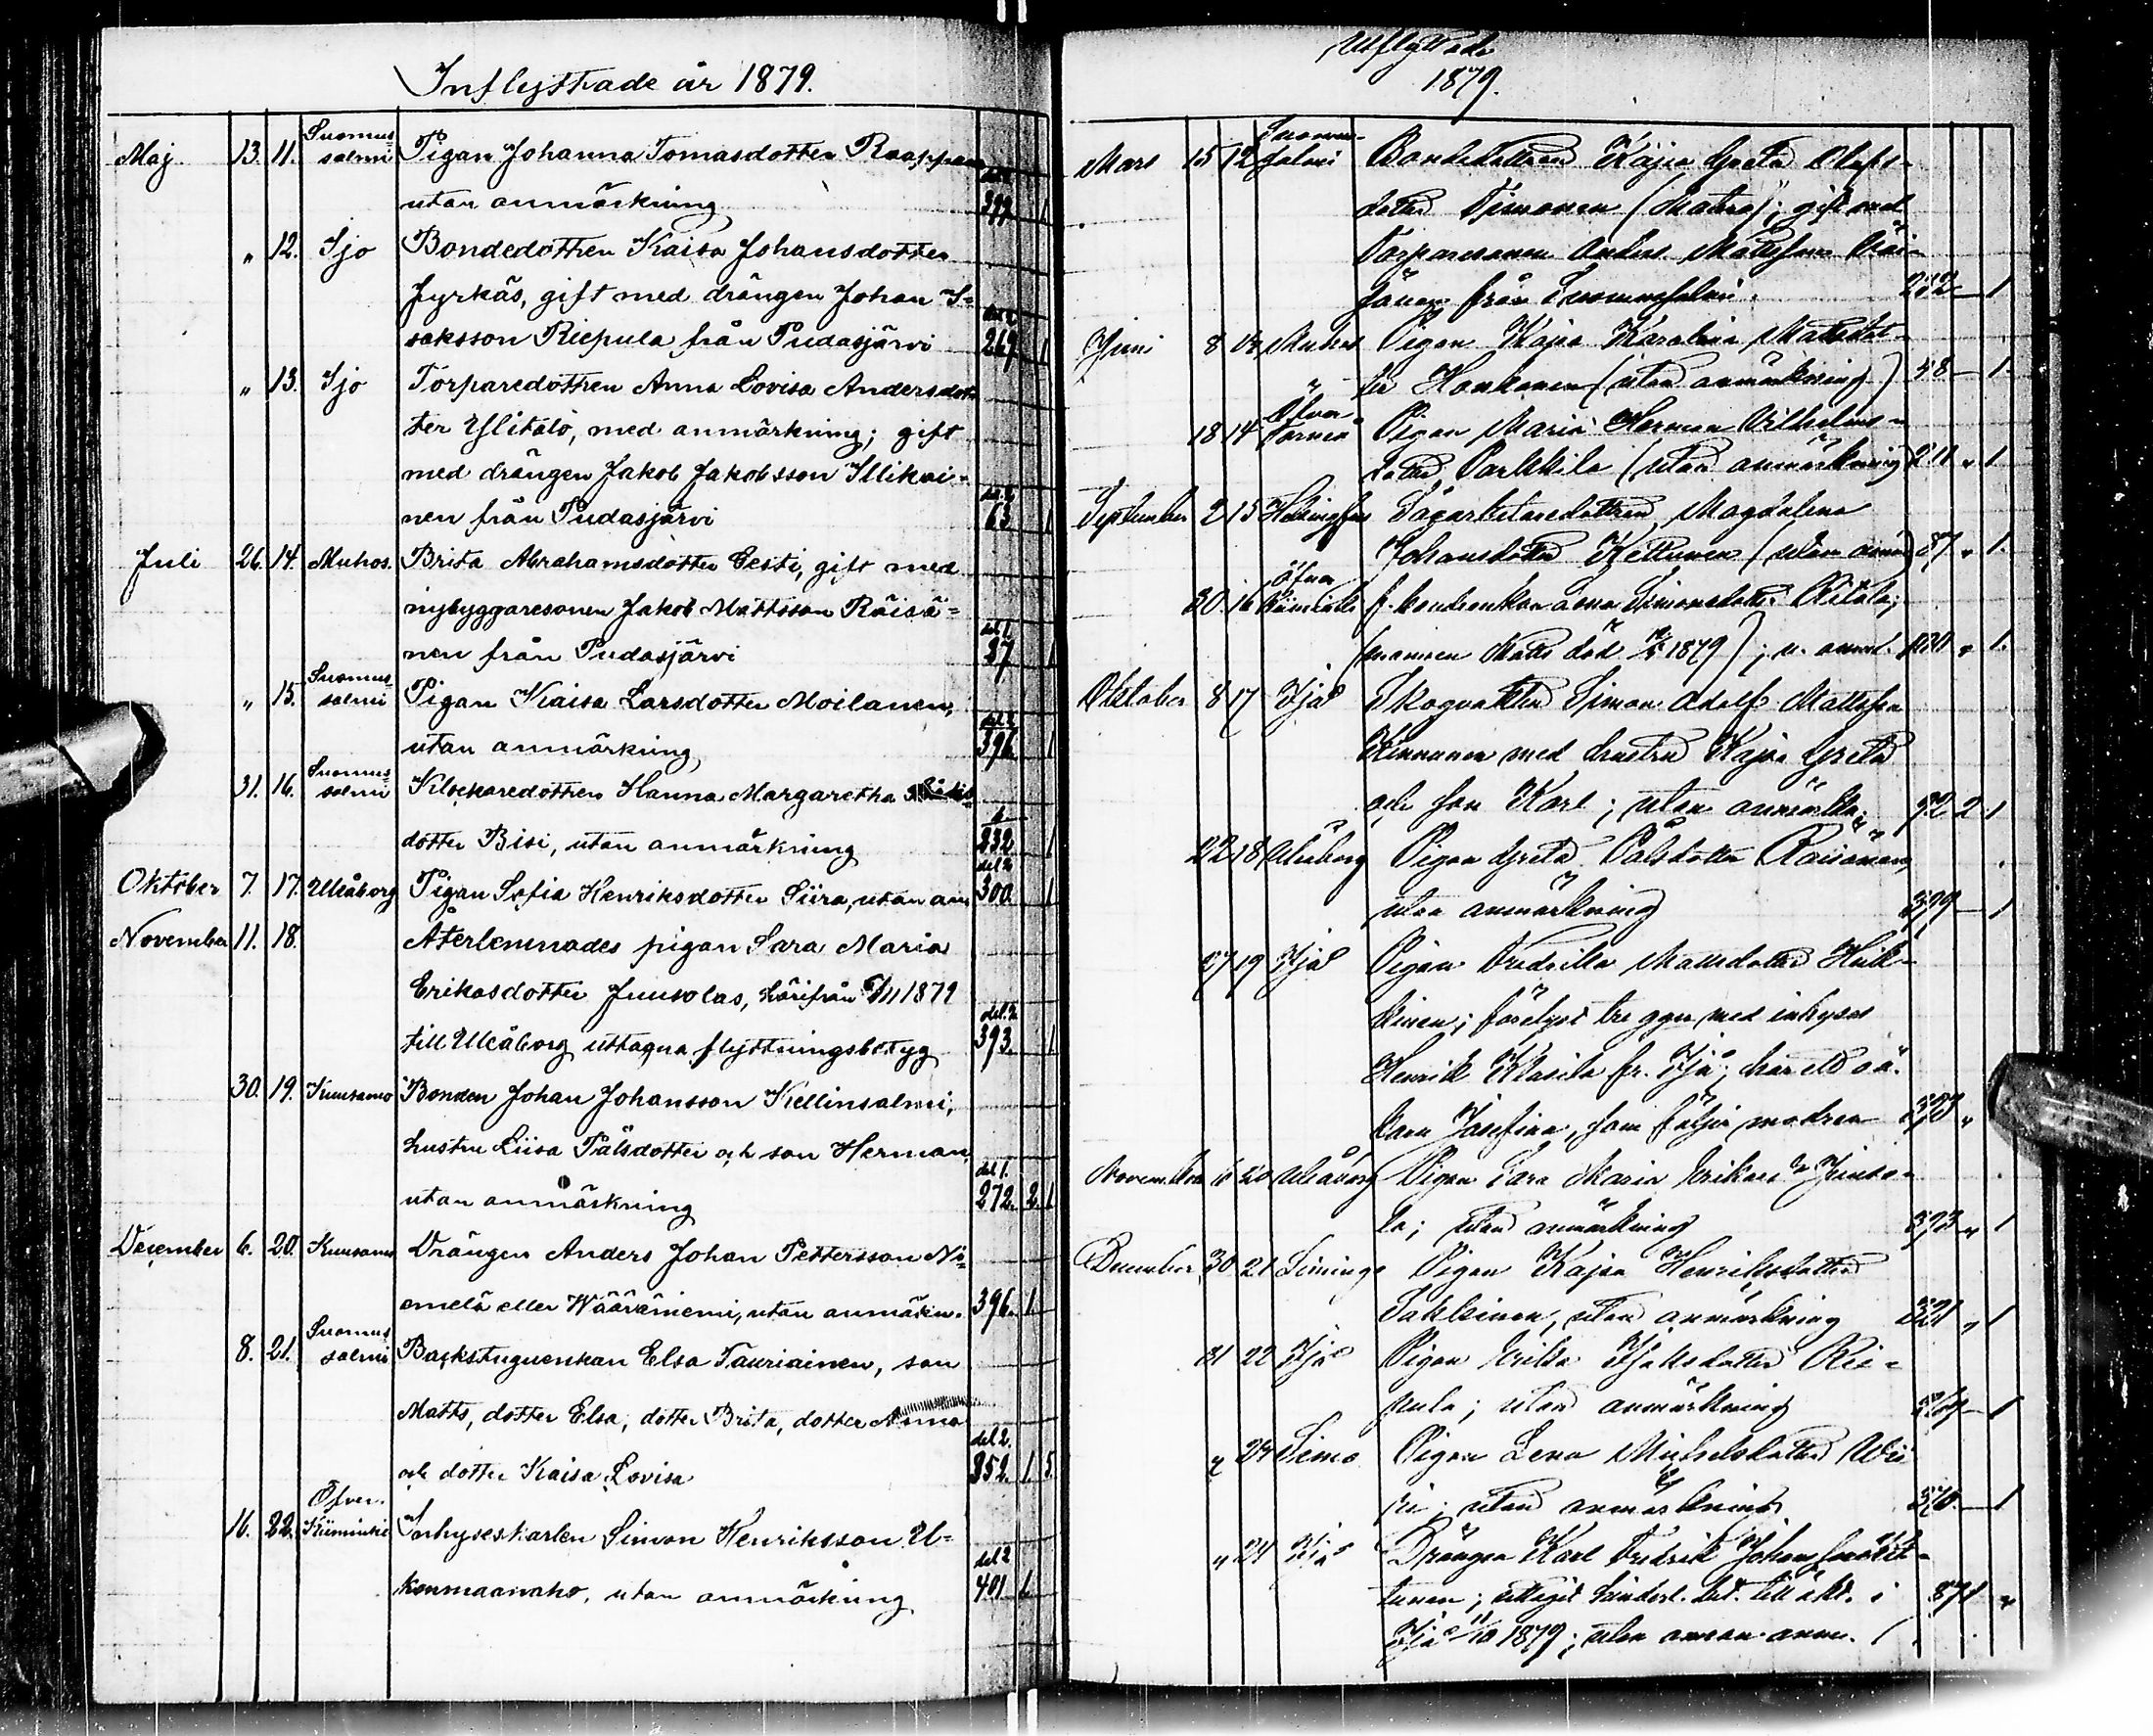 Inflyttade år 1879.
Maj 13. 11. Suomus=
salmi Pigan Johanna Tomasdotter Raappana
utan anmärkning 399 1
" 12. Ijo Bondedottren Kaisa Johansdotter
Jyrkäs, gift med drängen Johan I= del 2
saksson Riepula från Pudasjärvi 269 1
" 13. Ijo Torparedottren Anna Lovisa Andersdot
ter Ylitalo, med anmärkning; gift
med drängen Jakob Jakobsson Illikai=
nen från Pudasjärvi 63 1
Juli 26. 14. Muhos. Brita Abrahamsdotter Eesti, gift med
nybyggaresonen Jakob Mattsson Räisä=
nen från Pudasjärvi del 1. 37 1
" 15. Suomus=
salmi Pigan Kaisa Larsdotter Moilanen,
utan anmärkning del 2 396. 1
31. 16. Suomus=
salmi Klockaredottren Hanna Margaretha
dotter Bisi, utan anmärkning 232 1
Oktober 7. 17. Uleåborg Pigan Sofia Henriksdotter Siira, utan anm del 2 300. 1
November 11. 18. Återlemnades pigan Sara Maria
Eriksdotter Juusolas, härifrån 1879
till Uleåborg uttagna flyttningsbetyg del. 2 393. 1
30. 19. Kuusamo Bonden Johan Johansson Kellinsalmi,
hustru Liisa Pålsdotter och son Herman,
utan anmärkning del 1. 272. 2. 1
December 6. 20. Kuusamo Drängen Anders Johan Pettersson Ni=
emelä eller Wääräniemi, utan anmärkn. 396. 1
8. 21. Suomus
salmi Backstuguenkan Elsa Tauriainen, son
Matts, dotter Elsa, dotter Brita, dotter Anna
och dotter Kaisa Lovisa del 2. 352. 1. 5.
16. 22. Öfver.
Kiiminki Inhyseskarlen Simon Henriksson U=
konmaanaho, utan anmärkning del 2 401 1
Utflyttade
1879.
Mars 15 12 Suomus-
salmi Bondedottren Kajsa Greta Olofs-
dotter Timonen gift med
Torparesonen Anders Mattsson Väi-
sänen från Suomussalmi. 232 — 1
Juni 8 Muhos Pigan Kajsa Karolina Mattsdot-
ter Honkanen (utan anmärkning) 48 — 1.
18 14 Öfver
Torneå Pigan Maria Herman Vilhelms-
dotter Parkkila (utan anmärkning) 211 " 1
September 2 15 Helsingfors Magdalena
Johansdotter Kettunen (utan anm) 87 " 1.
30 16 Öfver
Kiiminki f. bondenkan Simonsdotter
(mannen Matts död 1879); u. anm. " 1.
Oktober 8 17 Ijå Skogvaktaren Simon Adolf Mattsson
Kinnunen med hustru Kajsa Greta
och son Karl; utan anmärkn. 92 2 1
22 18 Uleåborg Pigan Greta Pålsdotter Räisänen,
utan anmärkning 399 — 1
27 19 Ijå Pigan Fredrika Mattsdotter Heik-
kinen; förelyst tre ggr med inhyses
Henrik Klasila fr. Ijå; har
barn Josefina, som följer modren "
November 6 20 Uleåborg Pigan Sara Maria Eriksd r Juuso-
la; utan anmärkning 393 " 1
December 30 21 Liminge Pigan Kajsa Henriksdotter
Sakkinen, utan anmärkning 321 " 1
31 22 Ijå Pigan Erika Isaksdotter Rie-
pula; utan anmärkning 1
" Simo Pigan Lena Michelsdotter
utan anmärkning 370 — 1
" 24 Ijå Drängen Karl Fredrik Johansson
tunen; uttagit hinderl. bet. till äkt. i 371 "
Ijå 11/10 1879; utan annan anm.